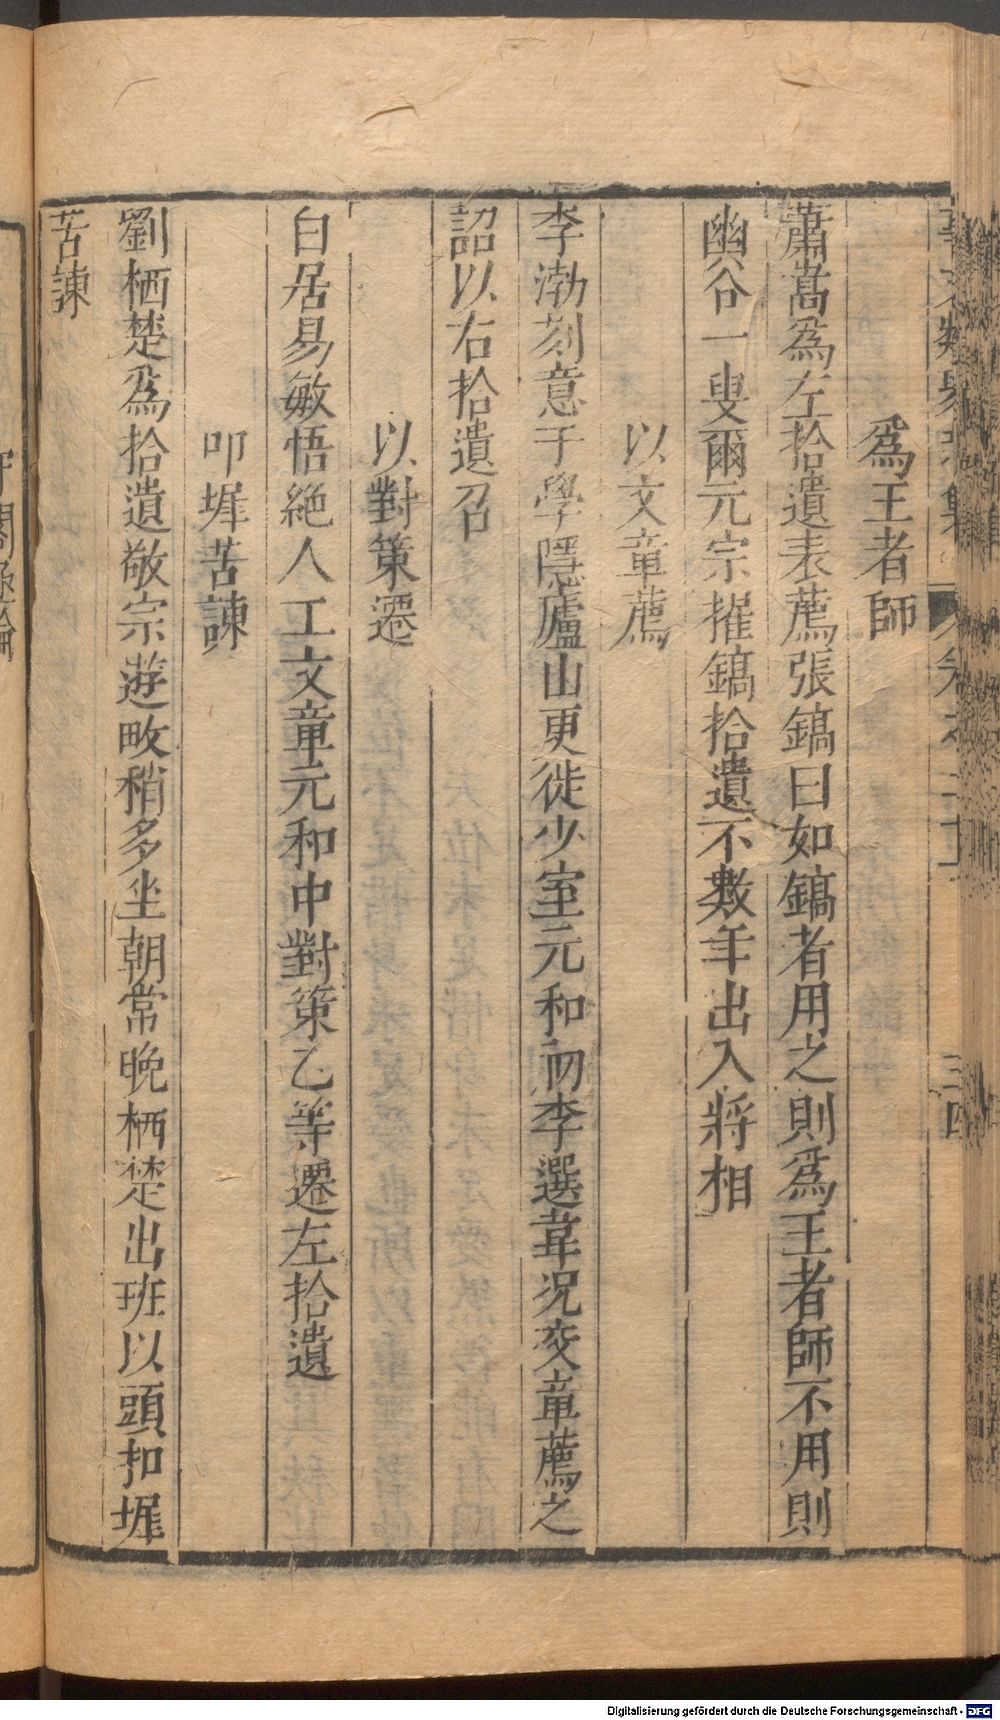 爲王者師
蕭嵩爲左拾遺表薦張鎬曰如鎬者用之則爲王者師不用則
幽谷一叟爾元宗擢鎬拾遺不數年出入將相
以文章薦
李渤刻意于學隱廬山更徙少室元和初李選韋况交章薦之
詔以右拾遺召
以對策遷
白居易敏悟絶人工文章元和中對策乙等遷左拾遺
叩墀苦諫
劉栖楚爲拾遺敬宗遊畋稍多坐朝常晚栖楚出班以頭扣墀
苦諫
Digitalisierung gefördert durch die Deutsche Forschungsgemeinschaft - DFG